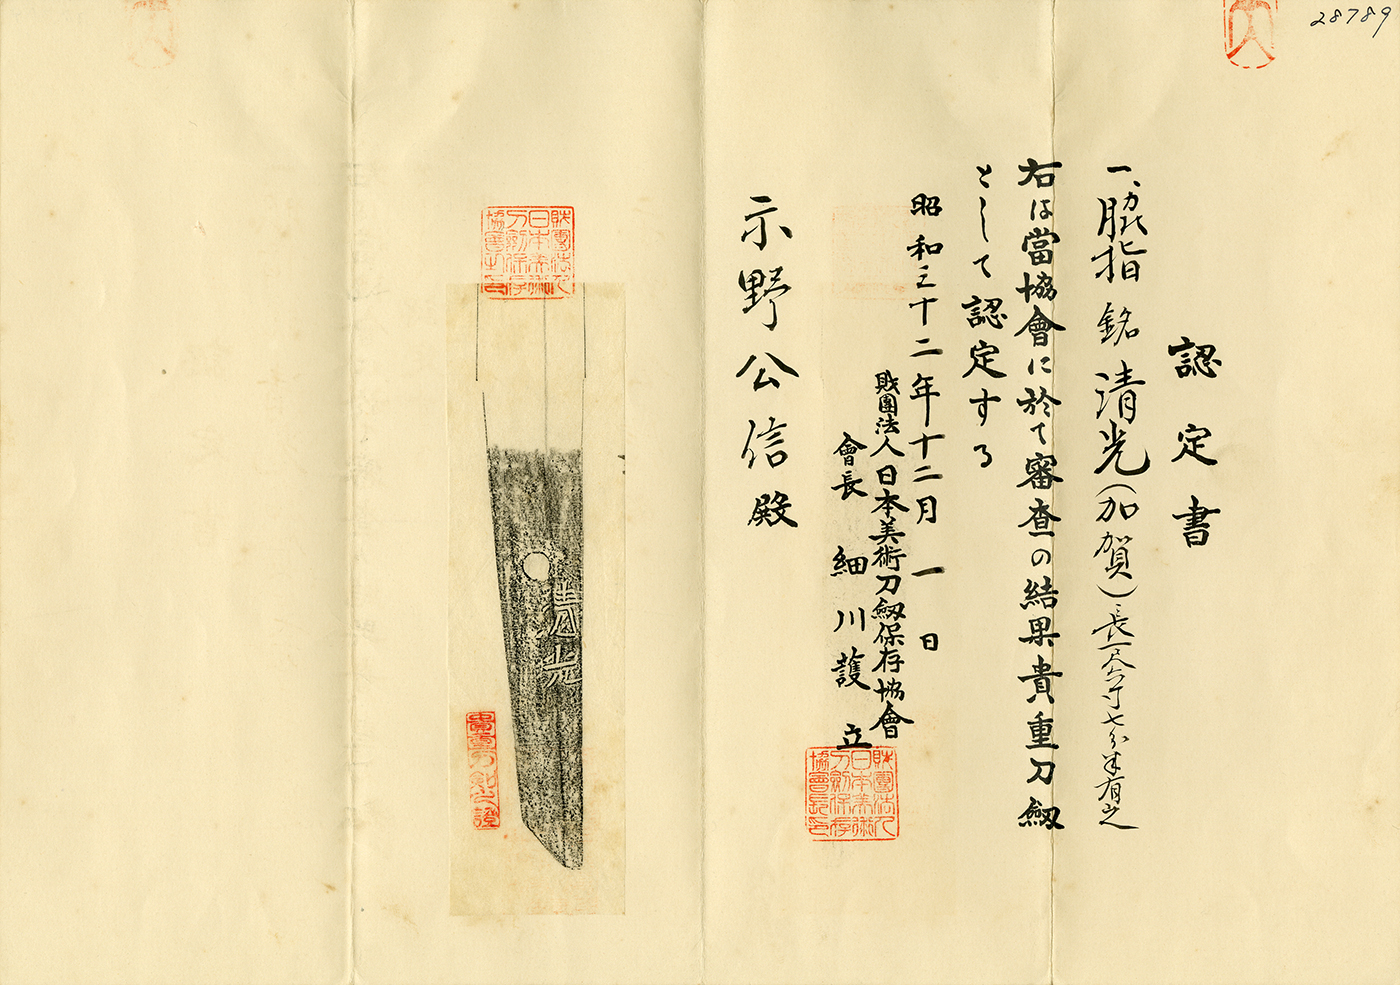 28789
認定書
一、脇指 銘 清光(加賀)長一尺六寸七分半有之
右は當協會に於て審査の結果貴重刀劔
として認定する
昭和三十二年十二月一日
財團法人日本美術刀劔保存協會
會長 細川護立
財團法人日本美術刀劍保存協會長之印
示野公信殿
財團法人日本美術刀劍保存協會之印
清光
貴重刀剣之證